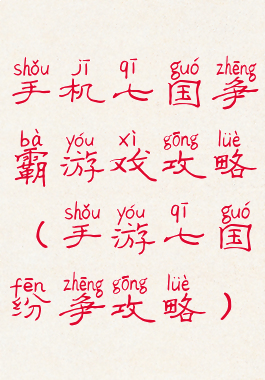 shǒu jī qī guó zhēng
手机七国争
bà yóu xì gōng lüè
霸游戏攻略
shǒu yóu qī guó
（手游七国
fēn zhēng gōng lüè
纷争攻略）